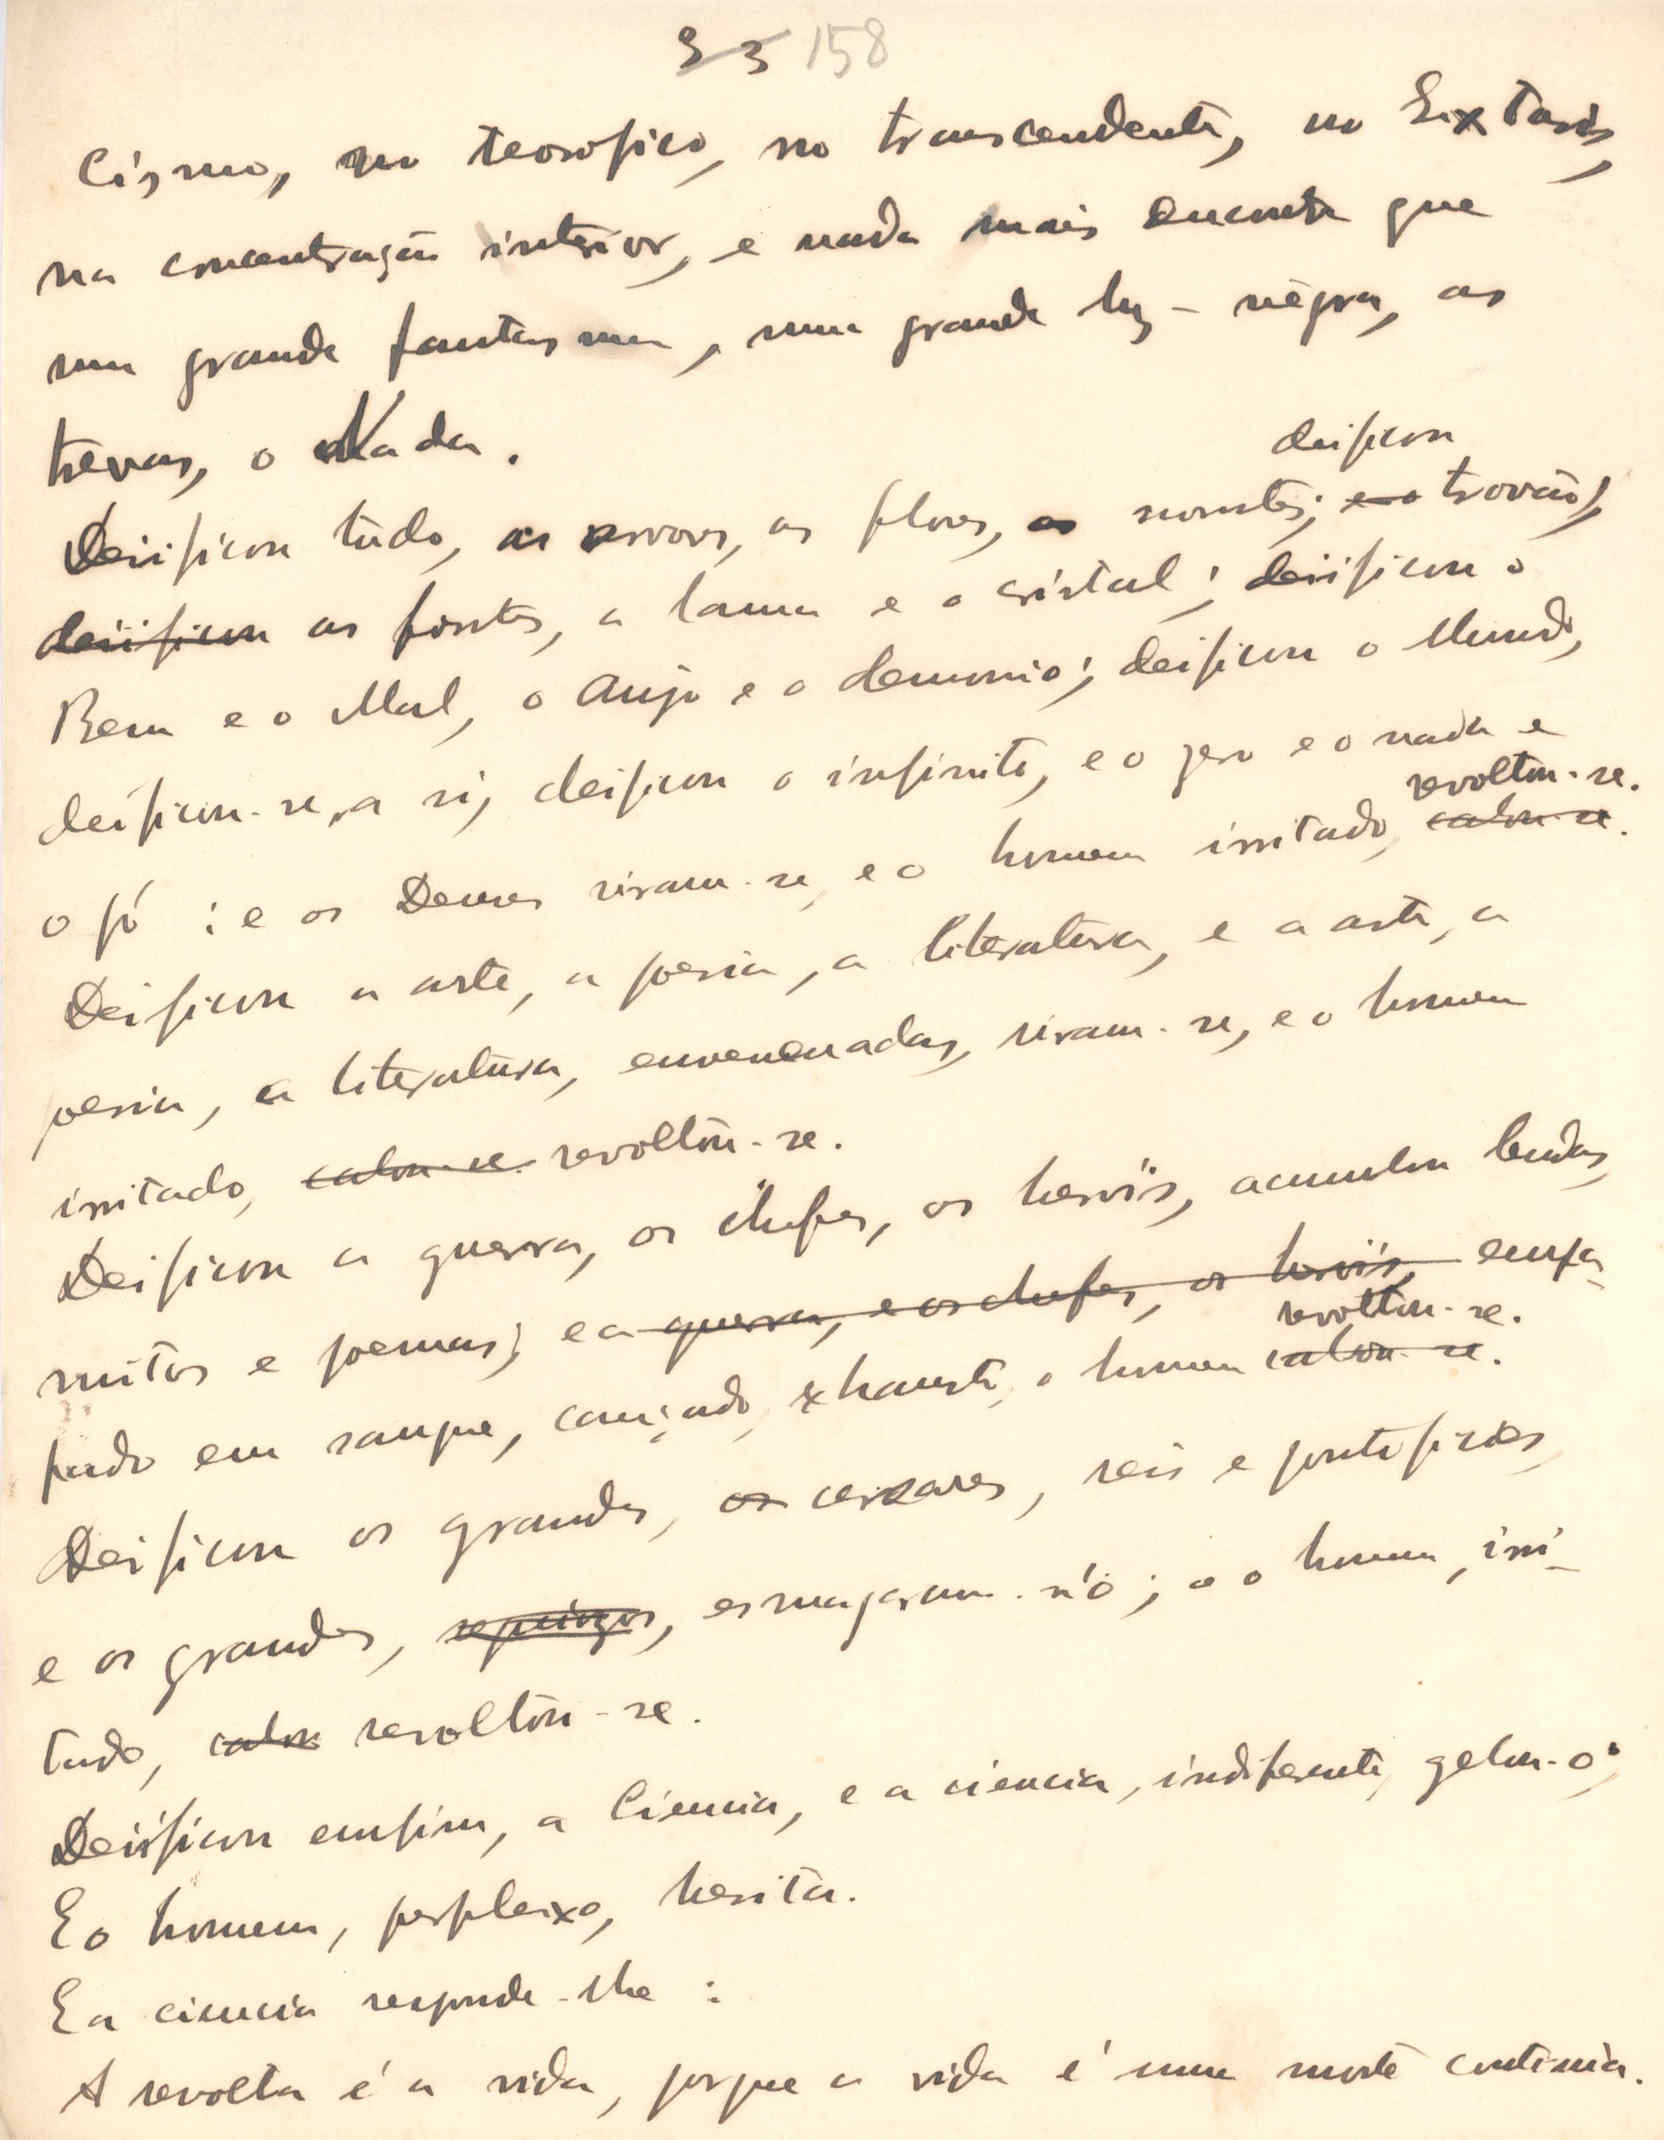 33 158
cismo, no teosofico, no transcendente, no Extasis,
na concentração interior, e nada mais encontra que
um grande fantasma, uma grande luz-negra, as
trevas, o Nada.
deificou
Deificou tudo, as arvores, as flores, os montes; e o trovão,
deificou as fontes, a lama e o cristal; deificou o
Bem e o Mal, o Anjo e o demonio; deificou o Mundo,
deificou-se, a si, deificou o infinito, e o zero e o nada e
revoltou-se.
o pó : e os Deuses riram-se, e o homem irritado, calou-se.
Deificou a arte, a poesia, a literatura, e a arte, a
poesia, a literatura, envenenadas, riram-se, e o homem
irritado, calou-se. revoltou-se.
Deificou a guerra, os chefes, os heróis, acumulou lendas,
mitos e poemas; e a guerra, e os chefes, os heróis, empa-
revoltou-se.
pado em sangue, cançado, exhausto, o homem calou-se.
Deificou os grandes, os cezares, reis e pontifices,
e os grandes, esmagaram-n'o; e o homem, irri-
tado, calou revoltou-se.
Deificou emfim, a Ciencia, e a ciencia, indiferente, gelou-o;
E o homem, perpleixo, hesita.
E a ciencia responde-lhe :
A revolta é a vida, porque a vida é uma morte continua.